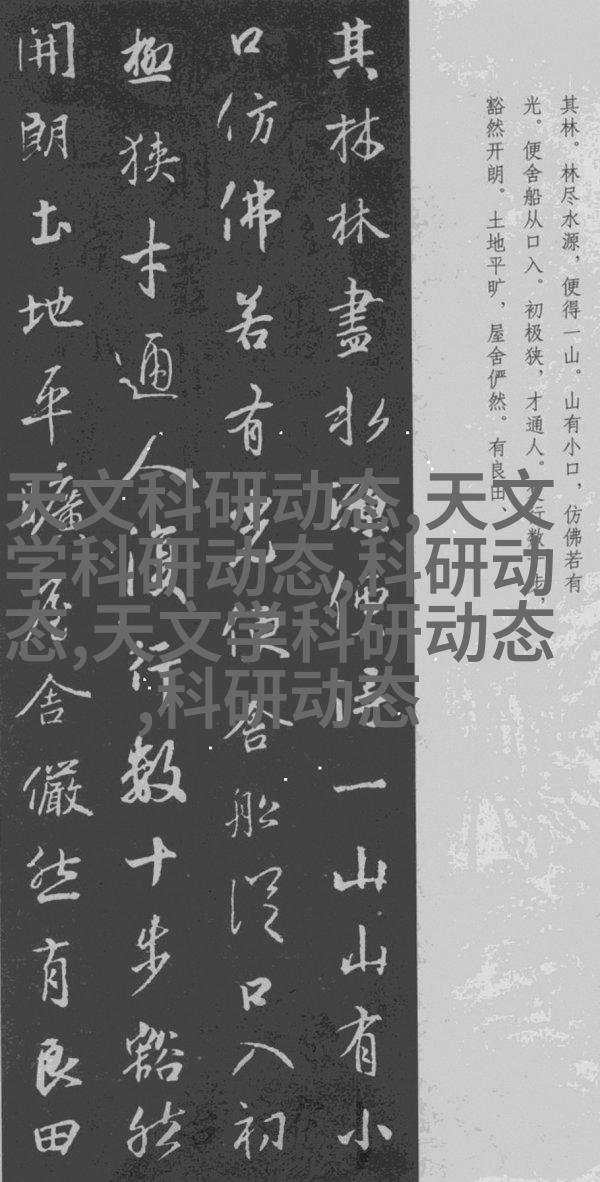 其林。林尽水源，便得一山。山有小口，仿佛若有
光。便舍船从口入。初极狭，才通人。复行数十步，
豁然开朗。土地平旷，屋舍俨然。有良田、
其林林盡水源便得一山山有小
口仿佛若有光便舍船從口入初
極狹才通人復行數十步豁然
開朗土地平曠屋舍儼然有良田
天文科研动态,天文
学科研动态,科研动
态,天文学科研动态
,科研动态